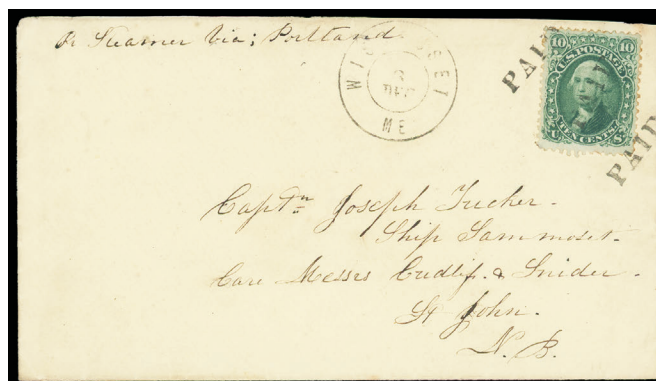 Pr Steamer Via; Portland
WISCASSET
8
DEC
ME
PAID
10 10
U.S. POSTAGE
TEN CENTS
U S
PAID
Captn Joseph Tucker.
Ship Sammoset.
Care Messrs Cudlip & Snider.
St John.
N. B.